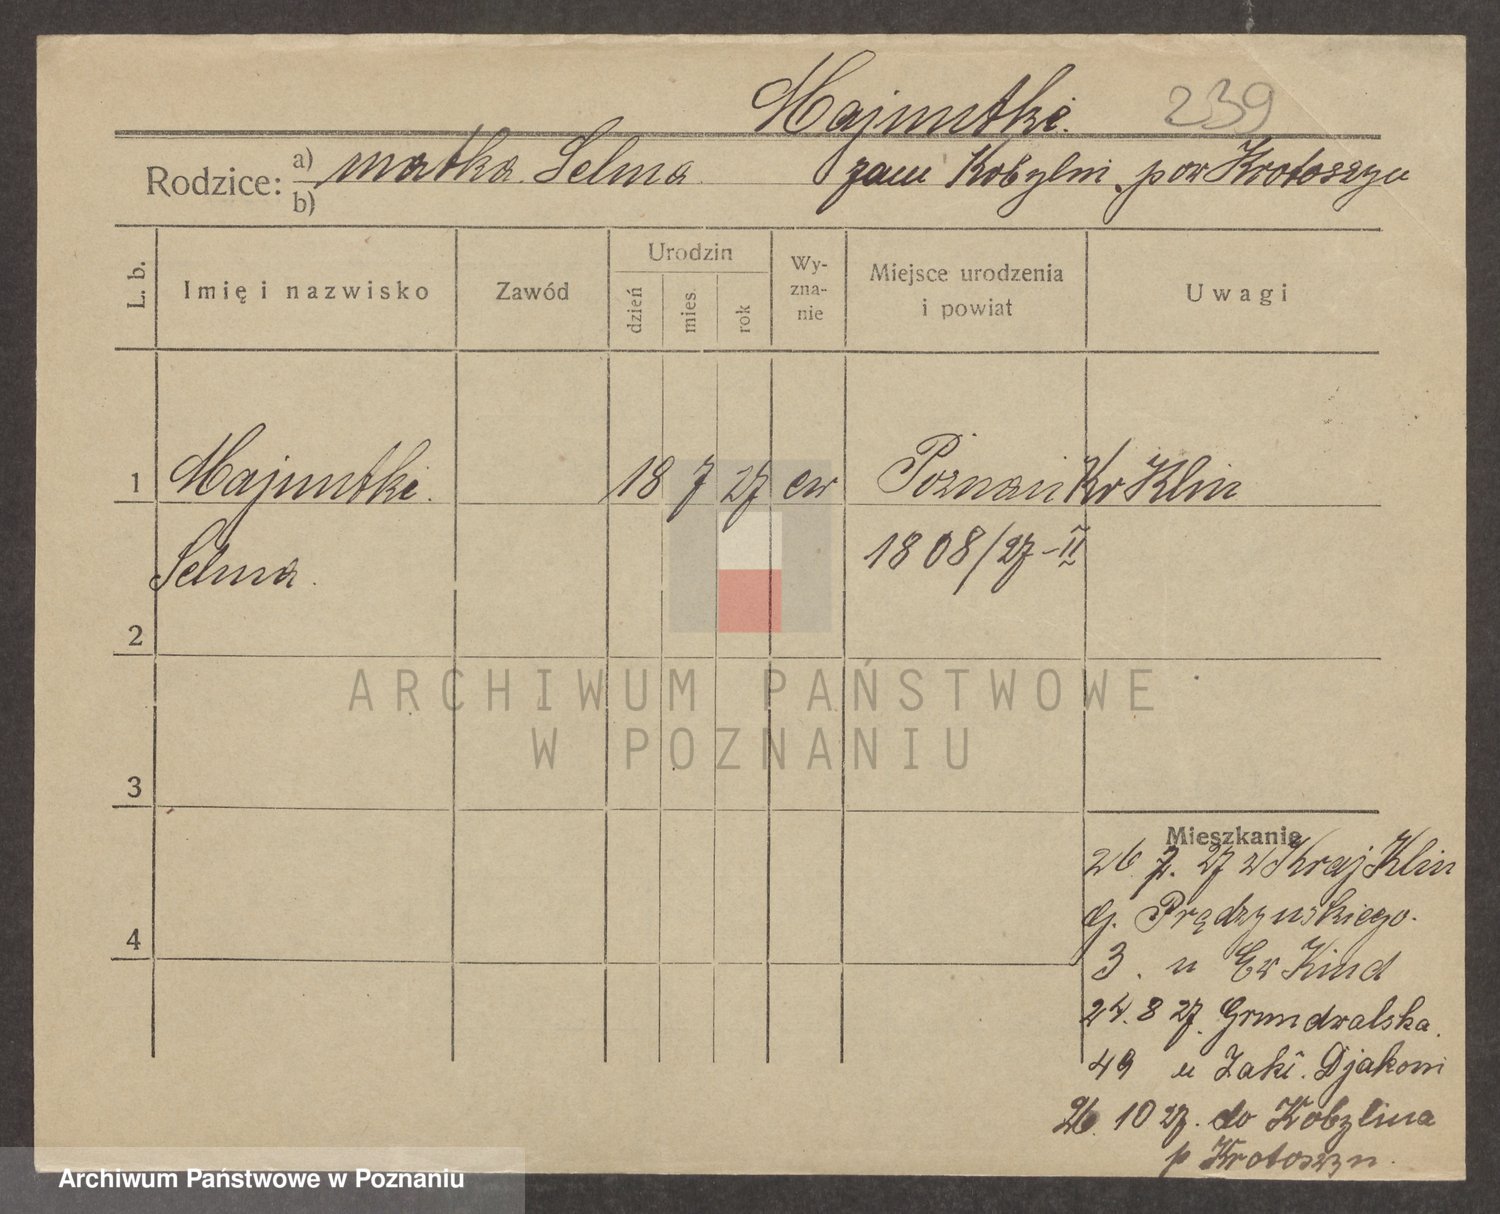 Majuntke. 239
Rodzice: a) matka Selma zam Kobylin, pow Krotoszyn
b)
L. b. Imię i nazwisko Zawód Urodzin dzień mies. rok Wy-zna-nie Miejsce urodzenia i powiat Uwagi
1 Majuntke. 18 7 27 ew Poznań Kr Klin
Selma. 1808/27-II
2
3
4
Mieszkanie
26. 7. 27 z Kraj Klin
Pradzynskiego.
3. u Ew Kind
24. 8 27. Grundwalska.
49 u Zakł. Djakoni
26. 10 27. do Kobylina
p Krotoszyn.
ARCHIWUM PAŃSTWOWE
W POZNANIU
Archiwum Państwowe w Poznaniu